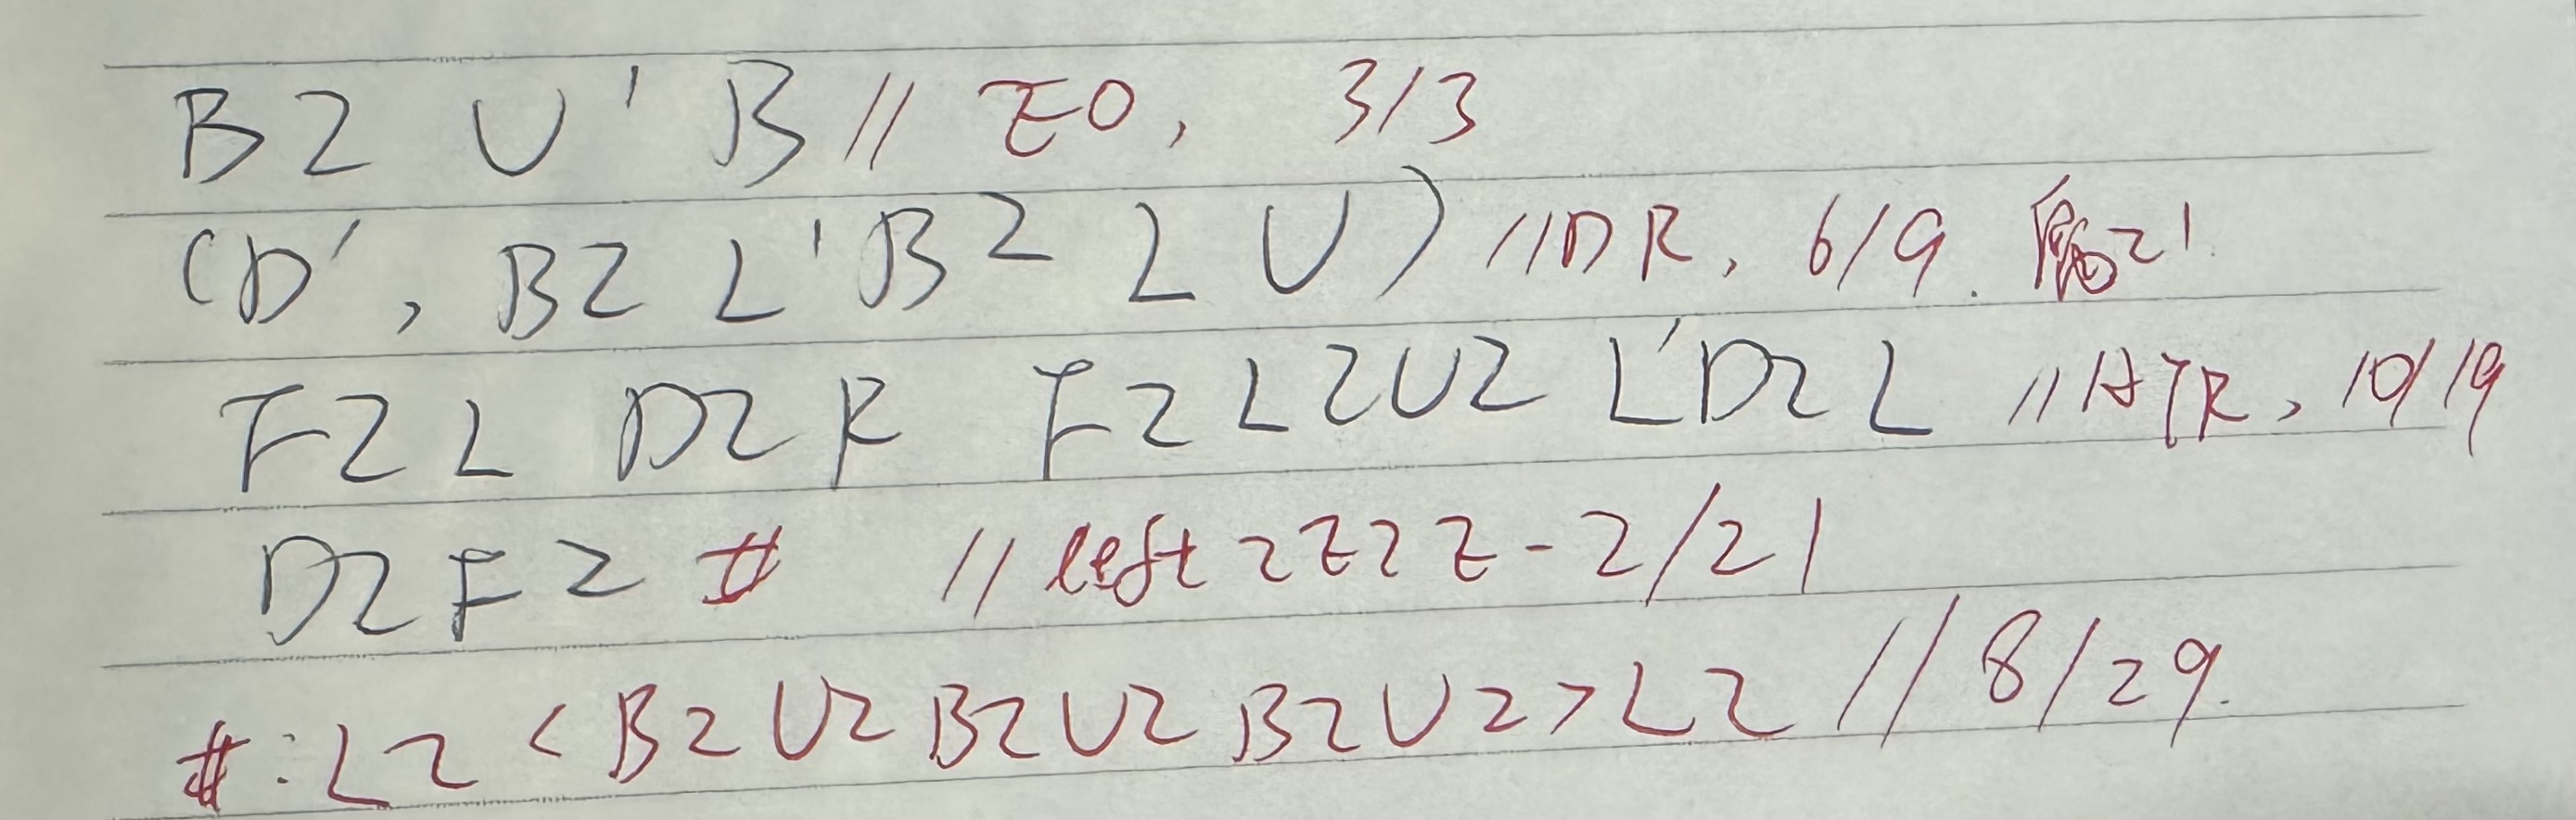 B2 U' B // EO, 3/3
(D', B2 L' B2 L U) // DR, 6/9.
F2 L D2 R F2 L2 U2 L' D2 L // HTR, 10/19
D2 F2 # // left 2E2E - 2/21
#: L2 < B2 U2 B2 U2 B2 U2 > L2 // 8/29.